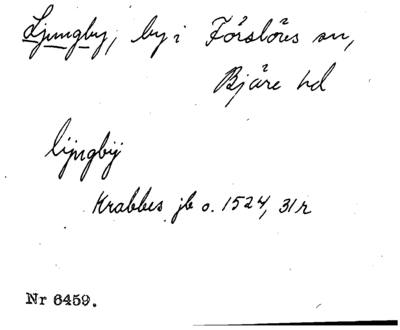 Ljungby, by i Förslövs sn,
Bjäre hd
lijngbij
Krabbes jb o. 1524, 31 r
Nr 6459.